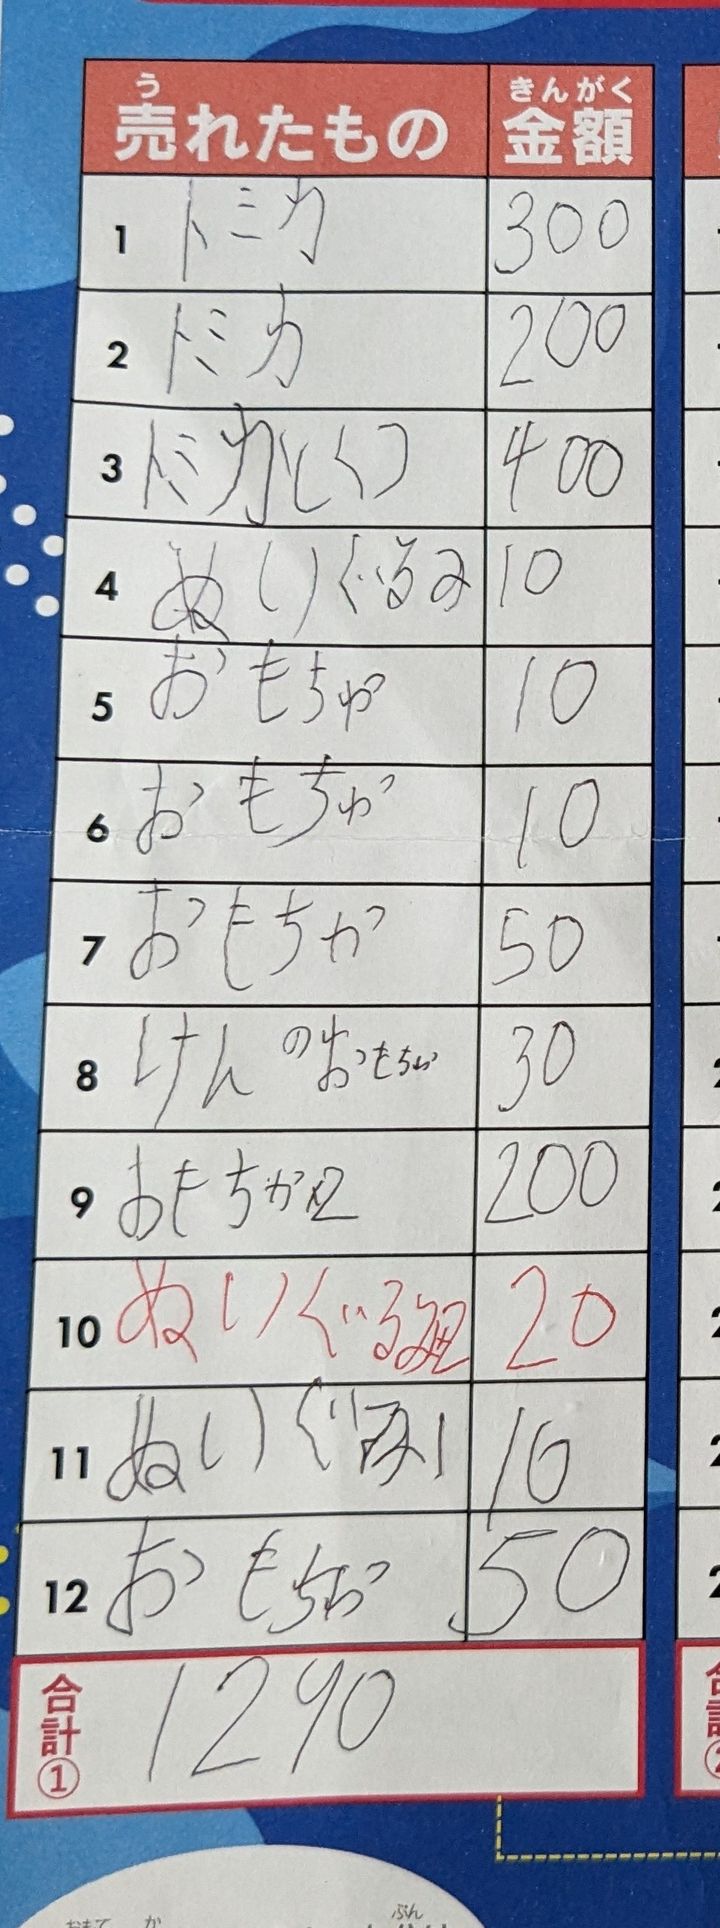 う きんがく
売れたもの 金額
1 トミカ 300
2 トミカ 200
3 トミカ 400
4 ぬいぐるみ 10
5 おもちゃ 10
6 おもちゃ 10
7 おもちゃ 50
8 けんのおもちゃ 30
9 おもちゃ2 200
10 ぬいぐるみ2 20
11 ぬいぐるみ1 10
12 おもちゃ 50
合計① 1290
おもて か ぶん